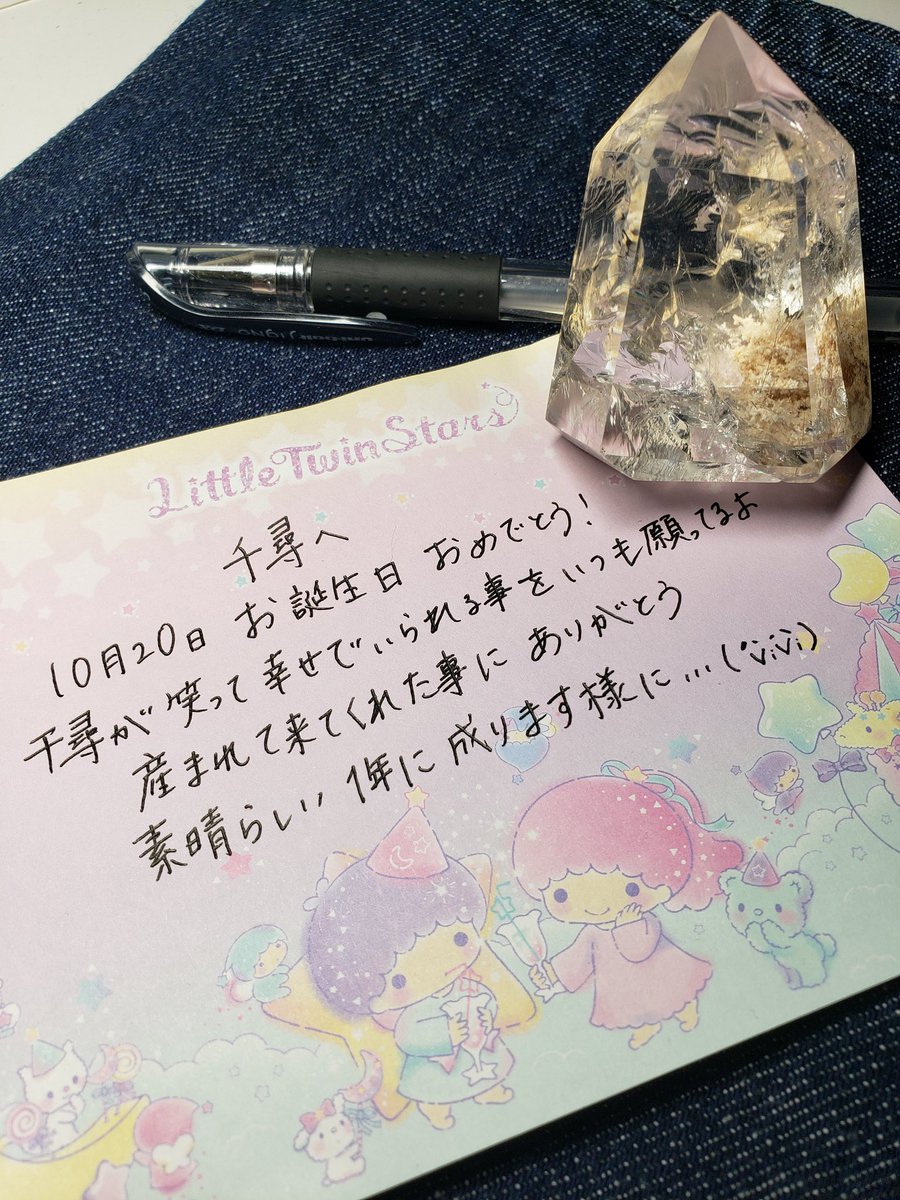 Little Twin Stars
千尋へ
10月20日 お誕生日 おめでとう!
千尋が笑って幸せでいられる事をいつも願ってるよ
産まれて来てくれた事に ありがとう
素晴らしい 1年に 成ります様に…